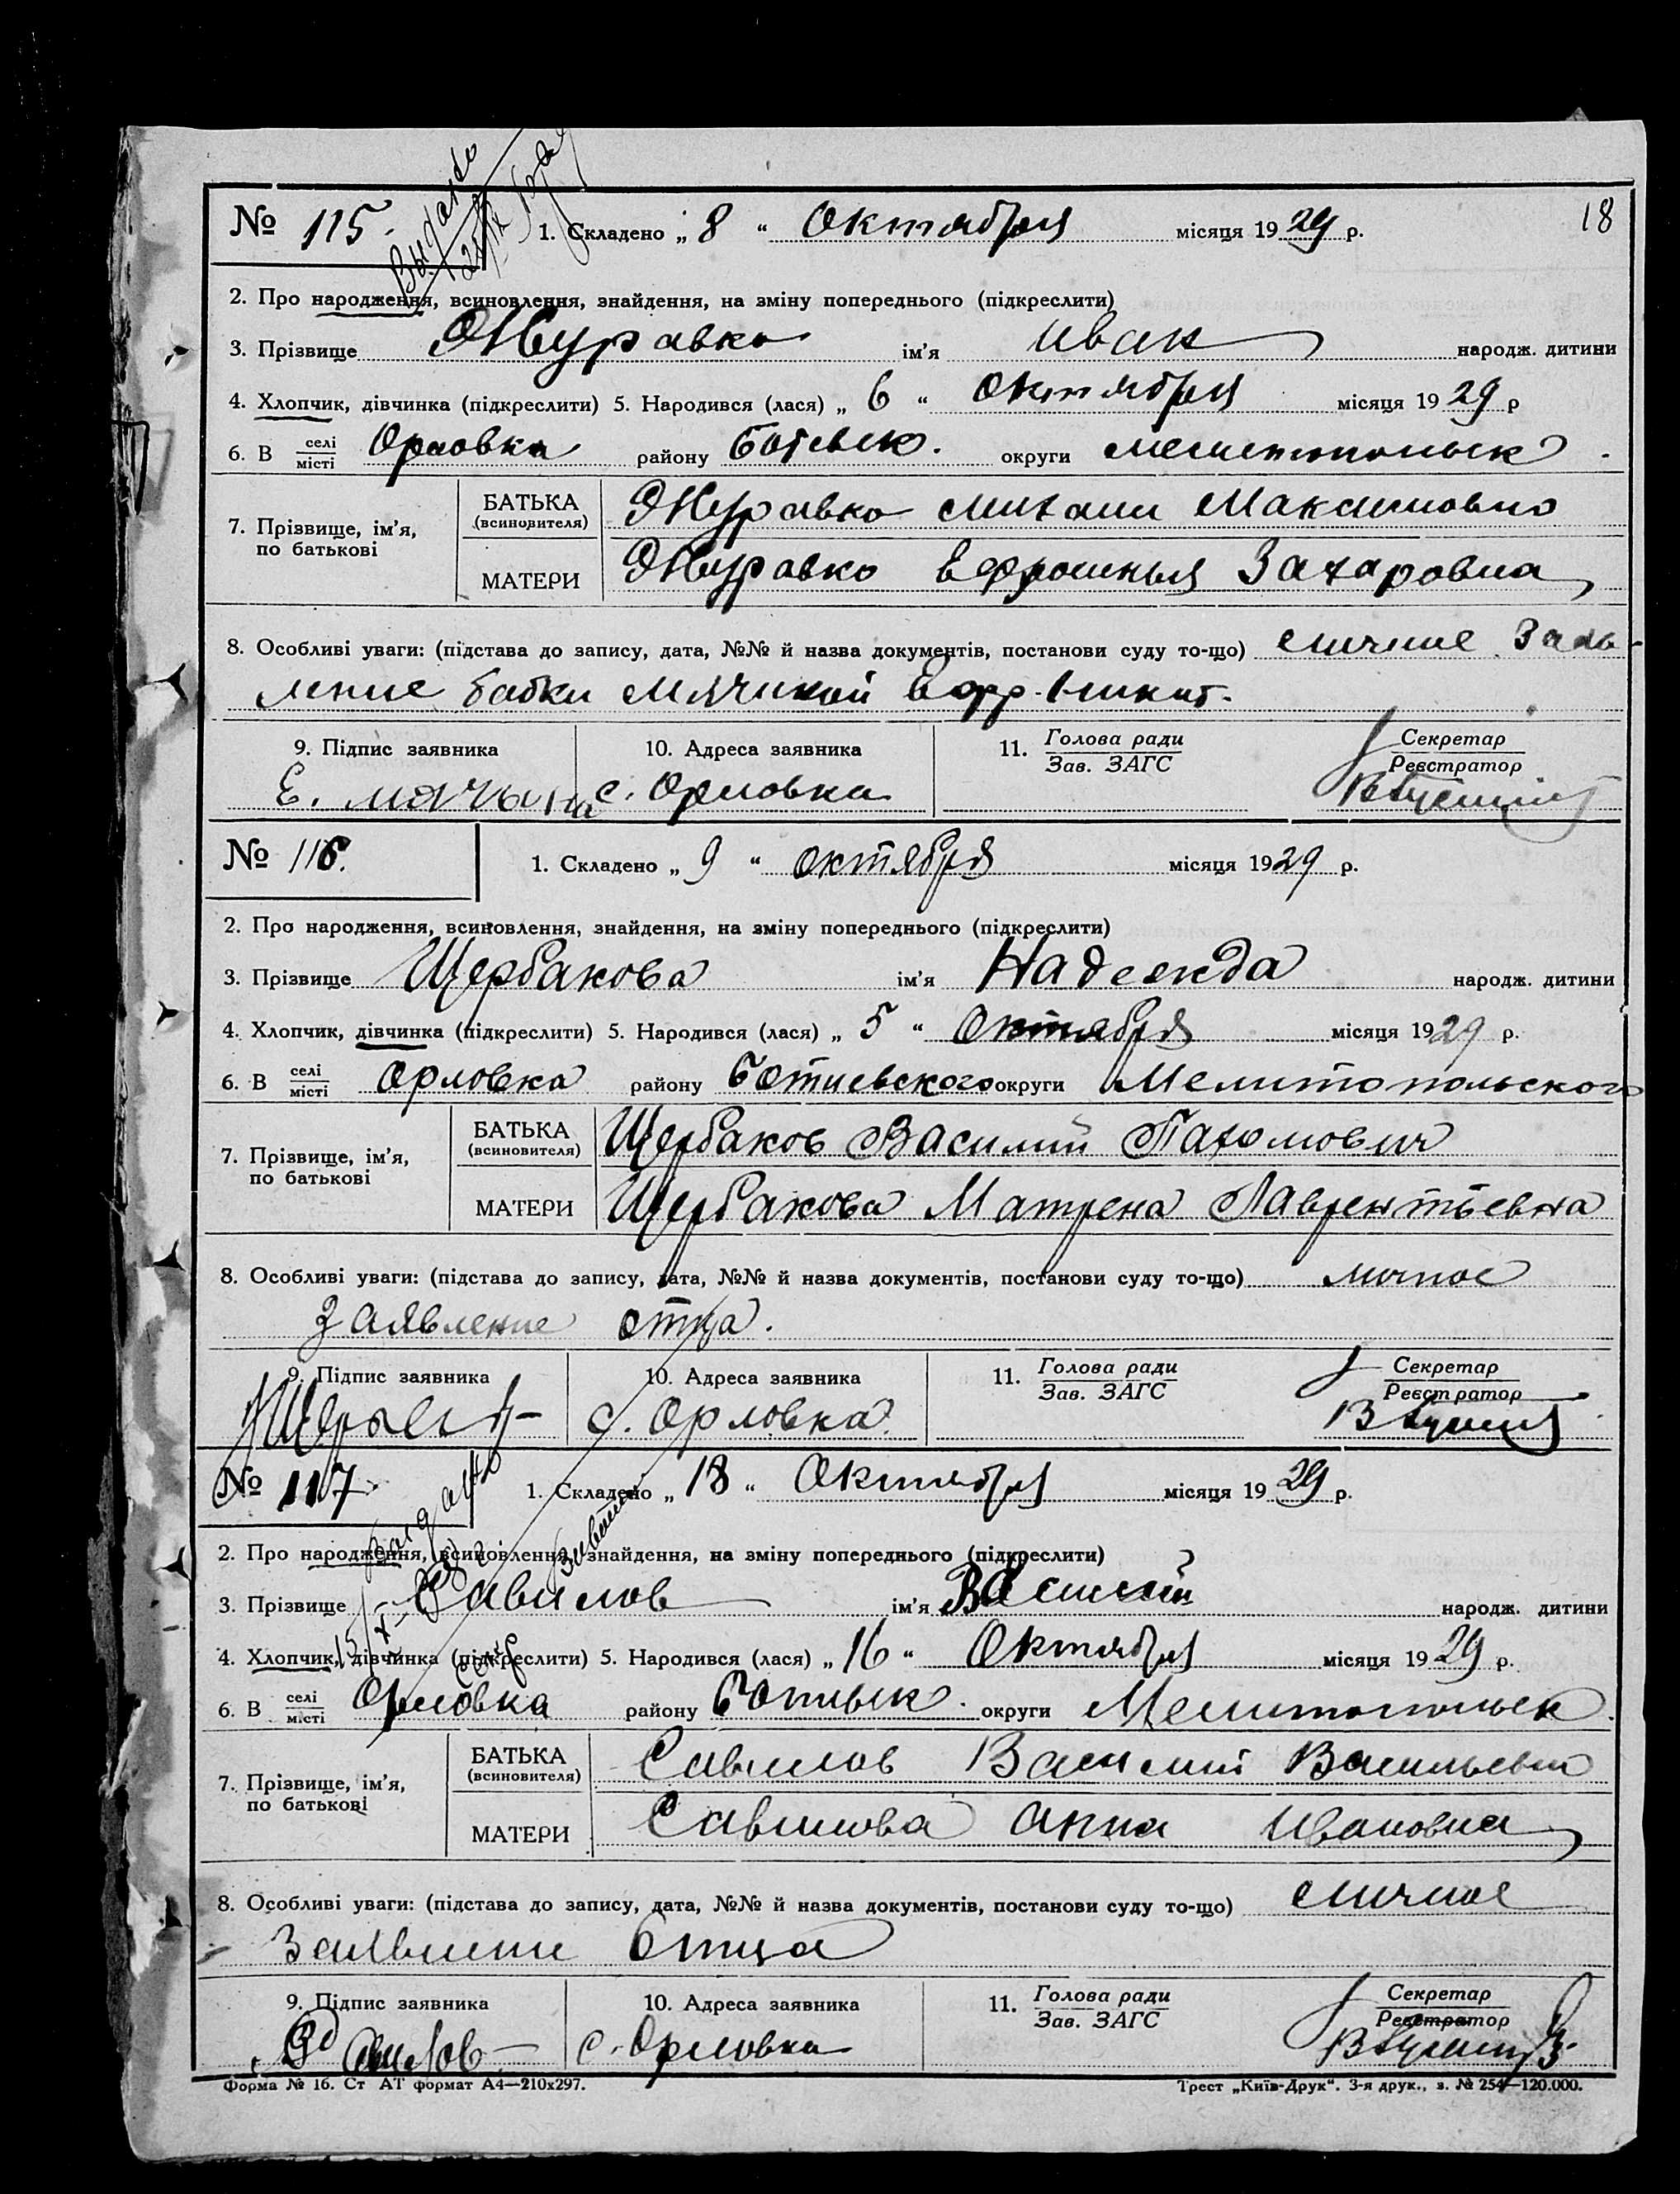 18
Выдано
№ 115. 1. Складено „ 8 “ Октября місяця 1929 р.
2. Про народження, всиновлення, знайдення, на зміну попереднього (підкреслити)
3. Прізвище Журавко ім'я Иван народж. дитини
4. Хлопчик, дівчинка (підкреслити) 5. Народився (лася) „ 6 “ Октября місяця 1929 р
6. В селі/місті Орловка району Ботевск. округи Мелитопольск.
7. Прізвище, ім'я, по батькові
БАТЬКА (всиновителя) Журавко Михаил Максимович
МАТЕРИ Журавко Ефросинья Захаровна
8. Особливі уваги: (підстава до запису, дата, №№ й назва документів, постанови суду то-що) личное Заяв-
ление бабки Мячиной Ефр. Никит.
9. Підпис заявника 10. Адреса заявника 11. Голова ради/Зав. ЗАГС Секретар/Реєстратор
Е. Мячына с. Орловка
№ 116. 1. Складено „ 9 “ октября місяця 1929 р.
2. Про народження, всиновлення, знайдення, на зміну попереднього (підкреслити)
3. Прізвище Щербакова ім'я Надежда народж. дитини
4. Хлопчик, дівчинка (підкреслити) 5. Народився (лася) „ 5 “ Октября місяця 1929 р.
6. В селі/місті Орловка району Ботиевского округи Мелитопольского
7. Прізвище, ім'я, по батькові
БАТЬКА (всиновителя) Щербаков Василий Пахомович
МАТЕРИ Щербакова Матрена Лаврентьевна
8. Особливі уваги: (підстава до запису, дата, №№ й назва документів, постанови суду то-що) личное
Заявление отца.
9. Підпис заявника 10. Адреса заявника 11. Голова ради/Зав. ЗАГС Секретар/Реєстратор
с. Орловка
№ 117 1. Складено „ 18 “ Октября місяця 1929 р.
2. Про народження, всиновлення, знайдення, на зміну попереднього (підкреслити)
3. Прізвище Савилов ім'я Василий народж. дитини
4. Хлопчик, дівчинка (підкреслити) 5. Народився (лася) „ 16 “ Октября місяця 1929 р.
6. В селі/місті Орловка району Ботиевск. округи Мелитопольск.
7. Прізвище, ім'я, по батькові
БАТЬКА (всиновителя) Савилов Василий Васильевич
МАТЕРИ Савилова Анна Ивановна
8. Особливі уваги: (підстава до запису, дата, №№ й назва документів, постанови суду то-що) личное
Заявление Отца
9. Підпис заявника 10. Адреса заявника 11. Голова ради/Зав. ЗАГС Секретар/Реєстратор
Савилов с. Орловка
Форма № 16. Ст АТ формат А4—210х297. Трест „Київ-Друк“. 3-я друк., з. № 254—120.000.